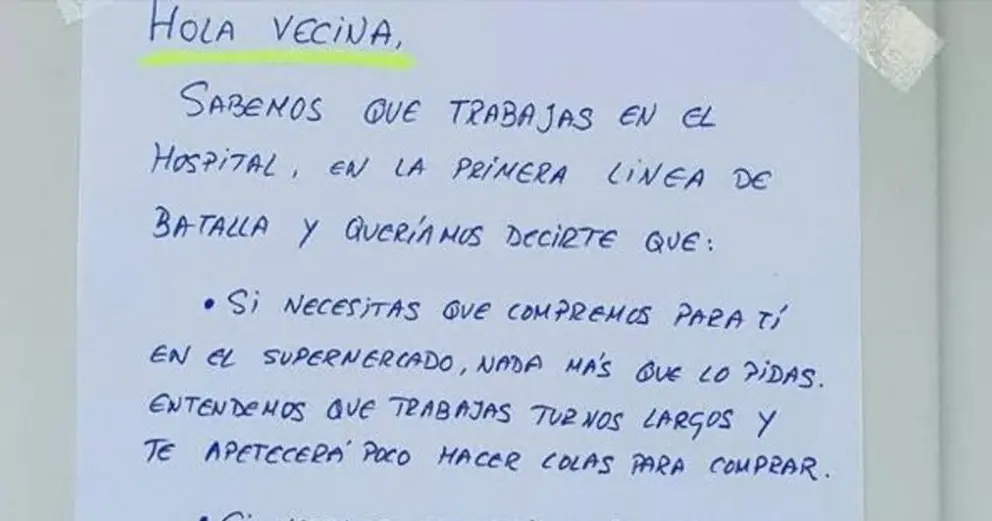 HOLA VECINA,
SABEMOS QUE TRABAJAS EN EL
HOSPITAL, EN LA PRIMERA LINEA DE
BATALLA Y QUERÍAMOS DECIRTE QUE:
• Si NECESITAS QUE COMPREMOS PARA TÍ
EN EL SUPERMERCADO, NADA MÁS QUE LO PIDAS.
ENTENDEMOS QUE TRABAJAS TURNOS LARGOS Y
TE APETECERÁ POCO HACER COLAS PARA COMPRAR.